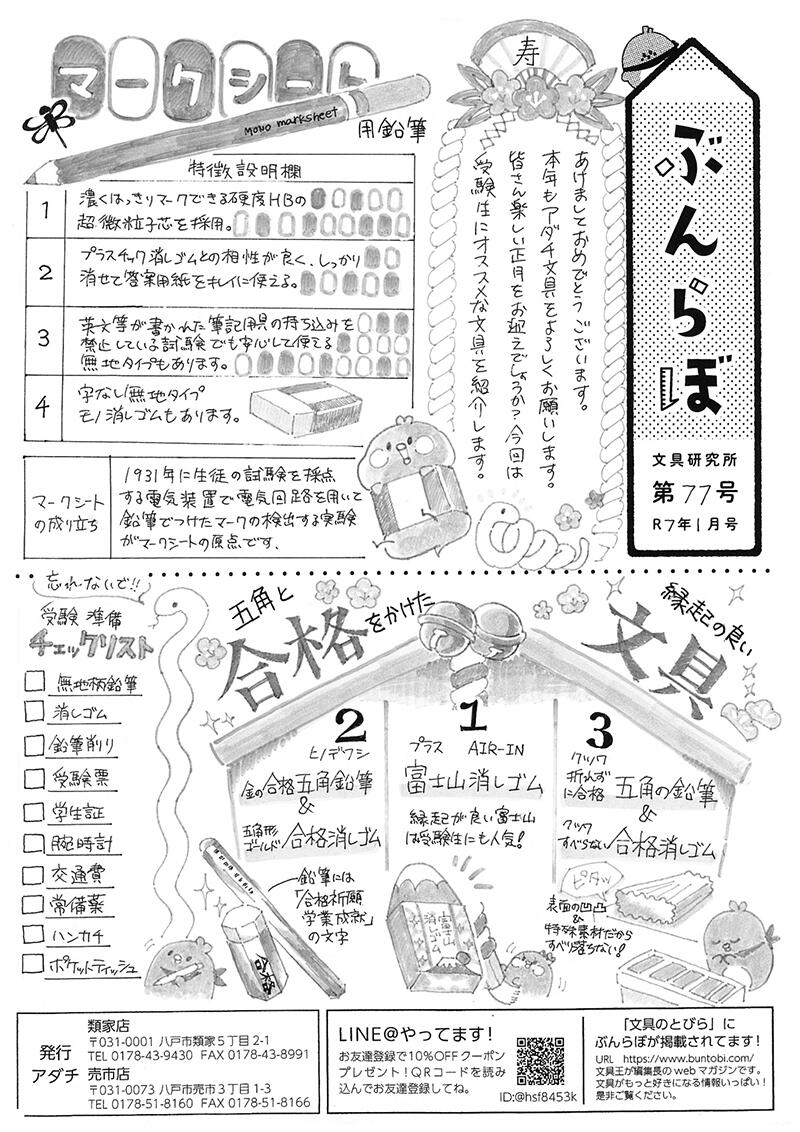 ぶんらぼ
文具研究所
第77号
R7年1月号
寿
あけましておめでとうございます。
本年もアダチ文具をよろしくお願いします。
皆さん楽しい正月をお迎えでしょうか?今回は
受験生にオススメな文具を紹介します。
マークシート
MONO marksheet
用鉛筆
特徴説明欄
1
濃くはっきりマークできる硬度HBの
超微粒子芯を採用。
2
プラスチック消しゴムとの相性が良く、しっかり
消せて答案用紙をキレイに使える。
3
英文等が書かれた筆記用具の持ち込みを
禁止している試験でも安心して使える
無地タイプもあります。
4
字なし無地タイプ
モノ消しゴムもあります。
マークシート
の成り立ち
1931年に生徒の試験を採点
する電気装置で電気回路を用いて
鉛筆でつけたマークの検出する実験
がマークシートの原点です。
忘れないで!!
受験準備
チェックリスト
無地柄鉛筆
消しゴム
鉛筆削り
受験票
学生証
腕時計
交通費
常備薬
ハンカチ
ポケットティッシュ
五角と
合格をかけた
縁起の良い
文具
2
ヒノデワシ
金の合格五角鉛筆
&
五角形
ゴールド合格消しゴム
鉛筆には
「合格祈願
学業成就」
の文字
合格
1
プラス AIR-IN
富士山消しゴム
縁起が良い富士山
は受験生にも人気!
富士山
消しゴム
3
クツワ
折れずに合格 五角の鉛筆
&
クツワ
すべらない合格消しゴム
ピタッ
表面の凹凸
&
特殊素材だから
すべり落ちない!
発行
アダチ
類家店
〒031-0001 八戸市類家5丁目2-1
TEL 0178-43-9430 FAX 0178-43-8991
売市店
〒031-0073 八戸市売市3丁目1-3
TEL 0178-51-8160 FAX 0178-51-8166
LINE@やってます!
お友達登録で10%OFFクーポン
プレゼント!QRコードを読み
込んでお友達登録してね。
ID:@hsf8453k
「文具のとびら」に
ぶんらぼが掲載されてます!
URL https://www.buntobi.com/
文具王が編集長のwebマガジンです。
文具がもっと好きになる情報いっぱい!
是非ご覧ください。